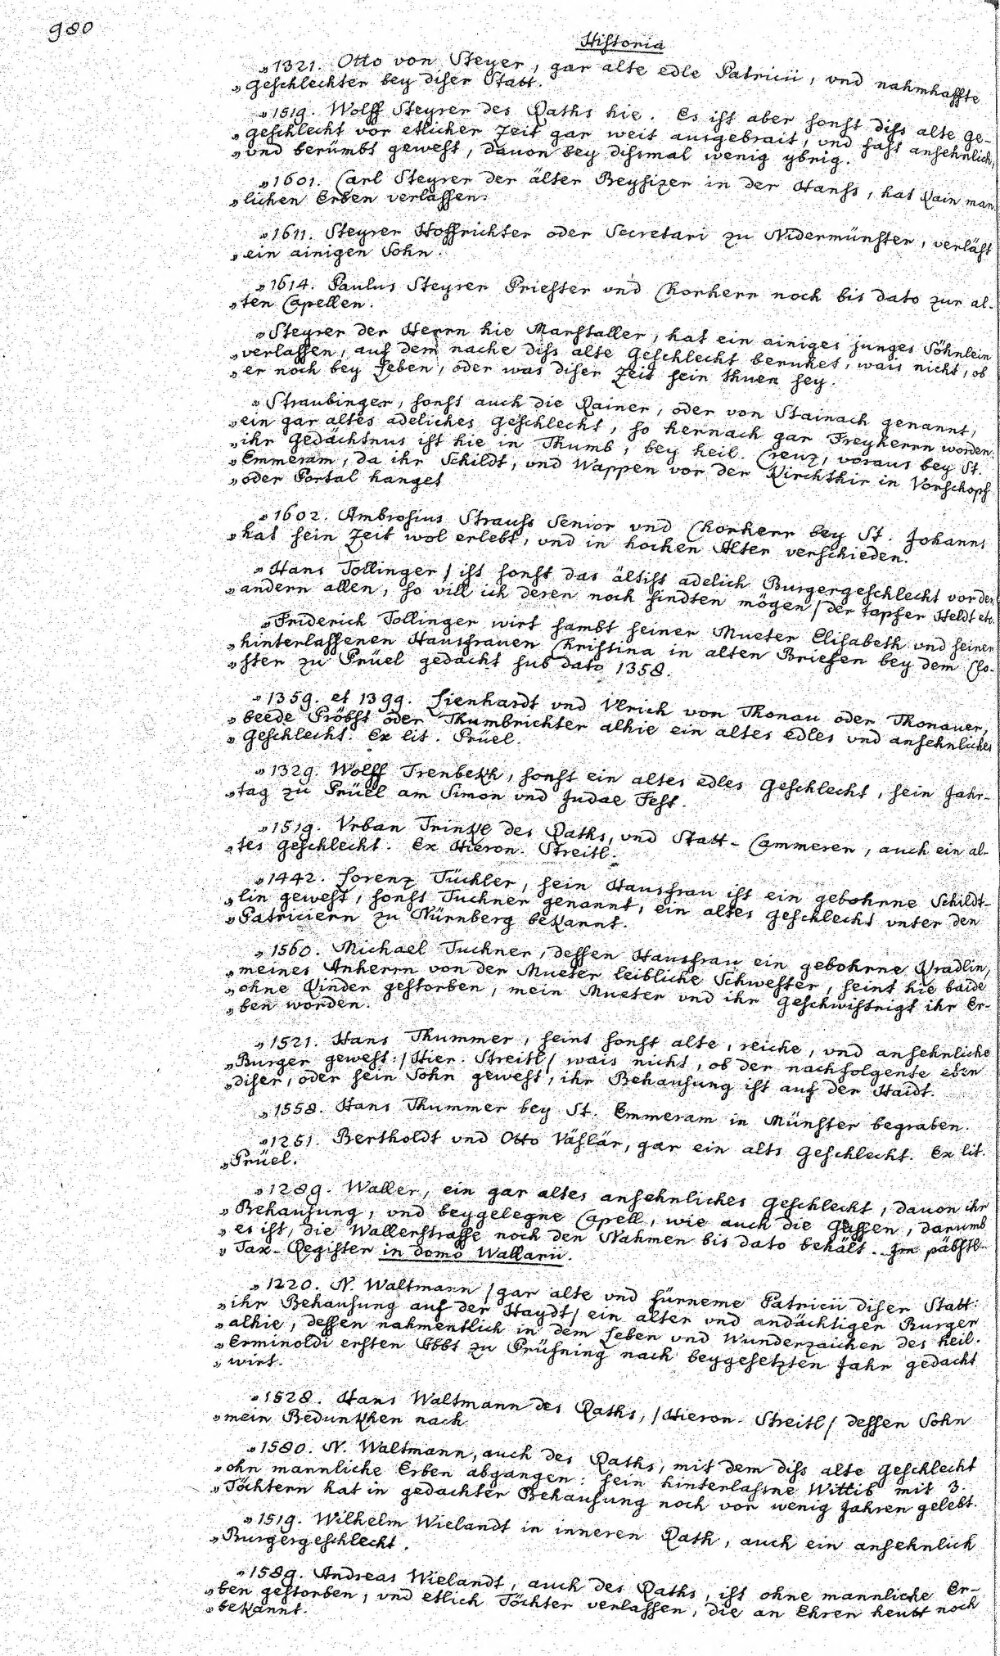 980
Historia
"1321. Otto von Steyer, gar alte edle Patricii, vnd nahmhaffte
"Geschlechter bey diser Statt.
"1519. Wolff Steyrer des Raths hie. Es ist aber sonst diss alte Ge-
"geschlecht vor etlicher Zeit gar weit aussgebrait, vnd fast ansehnlich,
"vnd berümbt gewest, dauon bey dissmal wenig ybrig.
"1601. Carl Steyrer der älter Beysizer in der Hanss, hat Kain man
"lichen Erben verlassen.
"1611. Steyrer Hoffrichter oder Secretari zu Nidermünster, verläst
"ein ainigen Sohn.
"1614. Paulus Steyrer Priester vnd Chorherr noch bis dato zur al-
"ten Capellen.
"Steyrer der Herrn hie Marstaller, hat ein ainiges junges Söhnlein
"verlassen, auf dem nache diss alte Geschlecht beruhet, wais nicht, ob
"er noch bey Leben, oder was diser Zeit sein thuen sey.
"Straubinger, sonst auch die Rainer, oder von Stainach genannt,
"ein gar altes adeliches Geschlecht, so hernach gar Freyherrn worden.
"ihr Gedächtnus ist hie in Thumb, bey heil. Creuz, voraus bey St.
"Emmeram, da ihr Schildt, vnd Wappen vor der Kirchthir in Vorschopf
"oder Portal hanget
"1602. Ambrosius Strauss Senior vnd Chorherr bey St. Johanns
"hat sein Zeit wol erlebt, vnd in hochen Alter verschieden.
"Hans Tollinger / ist sonst das ältist adelich Burgergeschlecht vor den
"andern allen, so vill ich deren noch findten mögen / der tapfer Heldt etc.
"Friderich Tollinger wirt sambt seiner Mueter Elisabeth vnd seiner
"hinterlassenen Hausfrauen Christina in alten Briefen bey dem Clo-
"ster zu Prüel gedacht sub dato 1358.
"1359. et 1399. Lienhardt vnd Vlrich von Thonau oder Thonauer,
"beede Pröbst oder Thumbrichter alhie ein altes edles vnd ansehnliches
"Geschlecht. Ex lit. Prüel.
"1329. Wolff Trenbekh, sonst ein altes edles Geschlecht, sein Jahr-
"tag zu Prüel am Simon vnd Judae Fest.
"1519. Vrban Trinkl des Raths, vnd Statt-Cammerer, auch ein al-
"tes Geschlecht. Ex Hieron. Streitl.
"1442. Lorenz Tückler, sein Hausfrau ist ein gebohrne Schildt-
"lin gewest, sonst Tuchner genannt, ein altes Geschlecht vnter den
"Patriciern zu Nürnberg bekannt.
"1560. Michael Tuchner, dessen Hausfrau ein gebohrne Kradlin,
"meines Anherrn von der Mueter leibliche Schwester, seint hie baide
"ohne Kinder gestorben, mein Mueter vnd ihr Geschwistrigt ihr Er-
"ben worden.
"1521. Hans Thummer, seint sonst alte, reiche, vnd ansehnliche
"Burger gewest: / Hier. Streitl / wais nicht, ob der nachfolgente eben
"diser, oder sein Sohn gewest, ihr Behausung ist auf der Haidt.
"1558. Hans Thummer bey St. Emmeram in Münster begraben.
"1251. Bertholdt vnd Otto Väslär, gar ein alts Geschlecht. Ex lit.
"Prüel.
"1289. Waller, ein gar altes ansehnliches Geschlecht, dauon ihr
"Behausung, vnd beygelegne Capell, wie auch die Gassen, darumb
"es ist, die Wallerstrasse noch den Nahmen bis dato behält. Im päbstl-
"Tax-Register in domo Wallarii.
"1220. N. Waltmann / gar alte vnd fürneme Patricii diser Statt:
"ihr Behausung auf der Haydt / ein alter vnd andächtiger Burger
"alhie, dessen nahmentlich in dem Leben vnd Wunderzaichen des heil.
"Erminoldi ersten Abbt zu Prüfning nach beygesetzten Jahr gedacht
"wirt.
"1528. Hans Waltmann des Raths, / Hieron. Streitl / dessen Sohn
"mein Bedunkhen nach
"1580. N. Waltmann, auch des Raths, mit dem diss alte Geschlecht
"ohn mannliche Erben abgangen: sein hinterlassne Wittib mit 3.
"Töchtern hat in gedachter Behausung noch vor wenig Jahren gelebt.
"1519. Wilhelm Wielandt in inneren Rath, auch ein ansehnlich
"Burgergeschlecht.
"1589. Andreas Wielandt, auch des Raths, ist ohne mannliche Er-
"ben gestorben, vnd etlich Töchter verlassen, die an Ehren heubt noch
"bekannt.